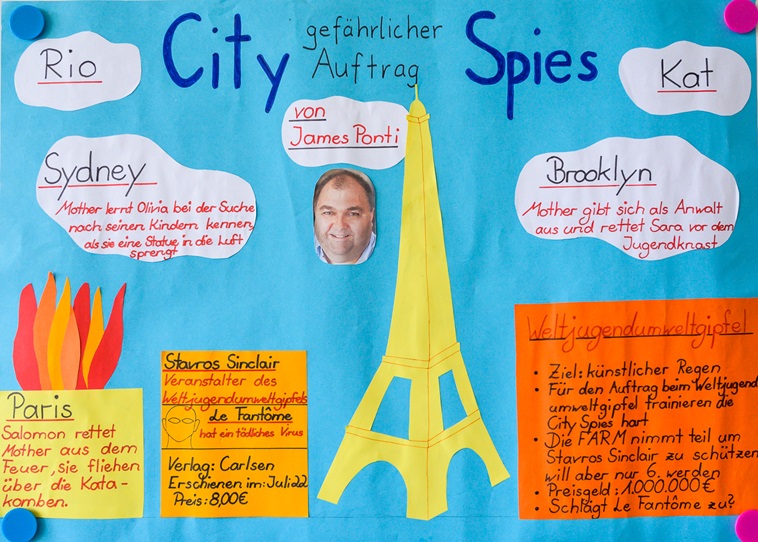 Rio
City
gefährlicher
Auftrag
Spies
Kat
von
James Ponti
Sydney
Mother lernt Olivia bei der Suche
nach seinen Kindern kennen,
als sie eine Statue in die Luft
sprengt
Brooklyn
Mother gibt sich als Anwalt
aus und rettet Sara vor dem
Jugendknast
Paris
Salomon rettet
Mother aus dem
Feuer, sie fliehen
über die Kata-
komben.
Stavros Sinclair
Veranstalter des
Weltjugendumweltgipfels
Le Fantôme
hat ein tödliches Virus
Verlag: Carlsen
Erschienen im: Juli 22
Preis: 8,00€
Weltjugendumweltgipfel
• Ziel: künstlicher Regen
• Für den Auftrag beim Weltjugend
umweltgipfel trainieren die
City Spies hart
• Die FARM nimmt teil um
Stavros Sinclair zu schützen
will aber nur 6. werden
• Preisgeld: 1.000.000€
• Schlägt Le Fantôme zu?